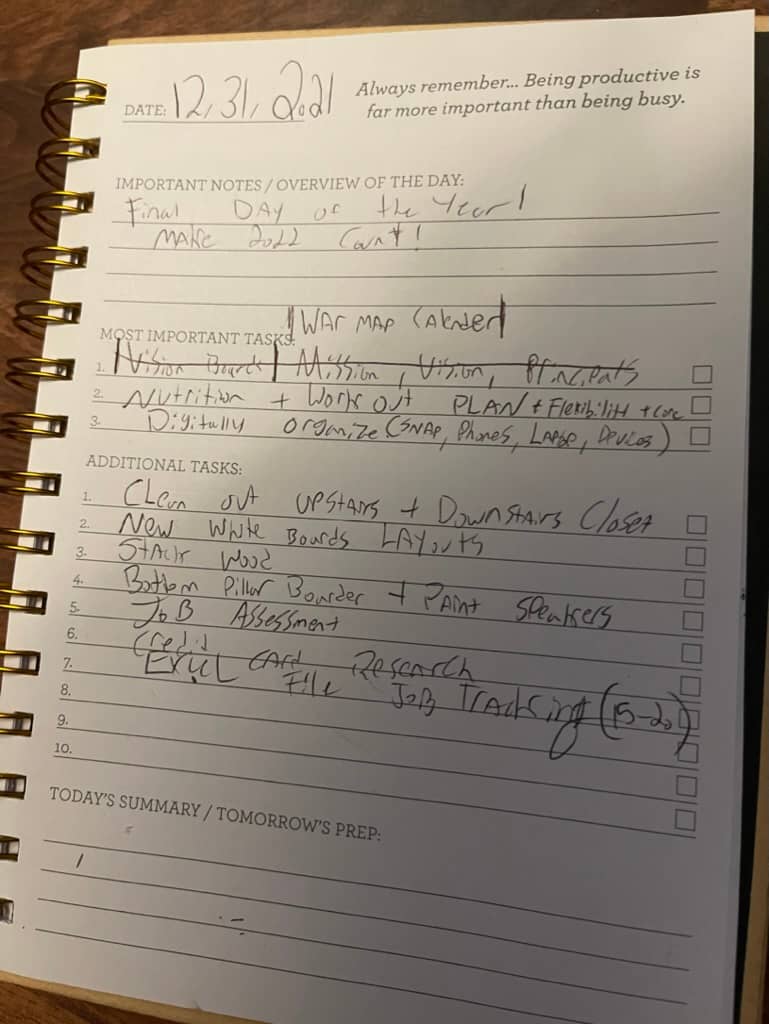 DATE: 12, 31, 2021
Always remember... Being productive is
far more important than being busy.
IMPORTANT NOTES / OVERVIEW OF THE DAY:
Final DAY of the Year!
MAke 2022 Count!
WAR MAP CAlender
MOST IMPORTANT TASKS:
1. Vision Boards | Mission, Vision, Principals
2. Nutrition + Work out PLAN + Flexibility + Core
3. Digitally organize (SNAP, Phones, LAptop, Devices)
ADDITIONAL TASKS:
1. Clean out UPSTAirs + DownSTAirs Closet
2. New White Boards LAYouts
3. STAck Wood
4. Bottom Pillar Boarder + PAint SpeaKers
5. JoB Assessment
6. Credit CARd Research
7. EXCEL File JoB TrAcking (15-20)
8.
9.
10.
TODAY'S SUMMARY / TOMORROW'S PREP: